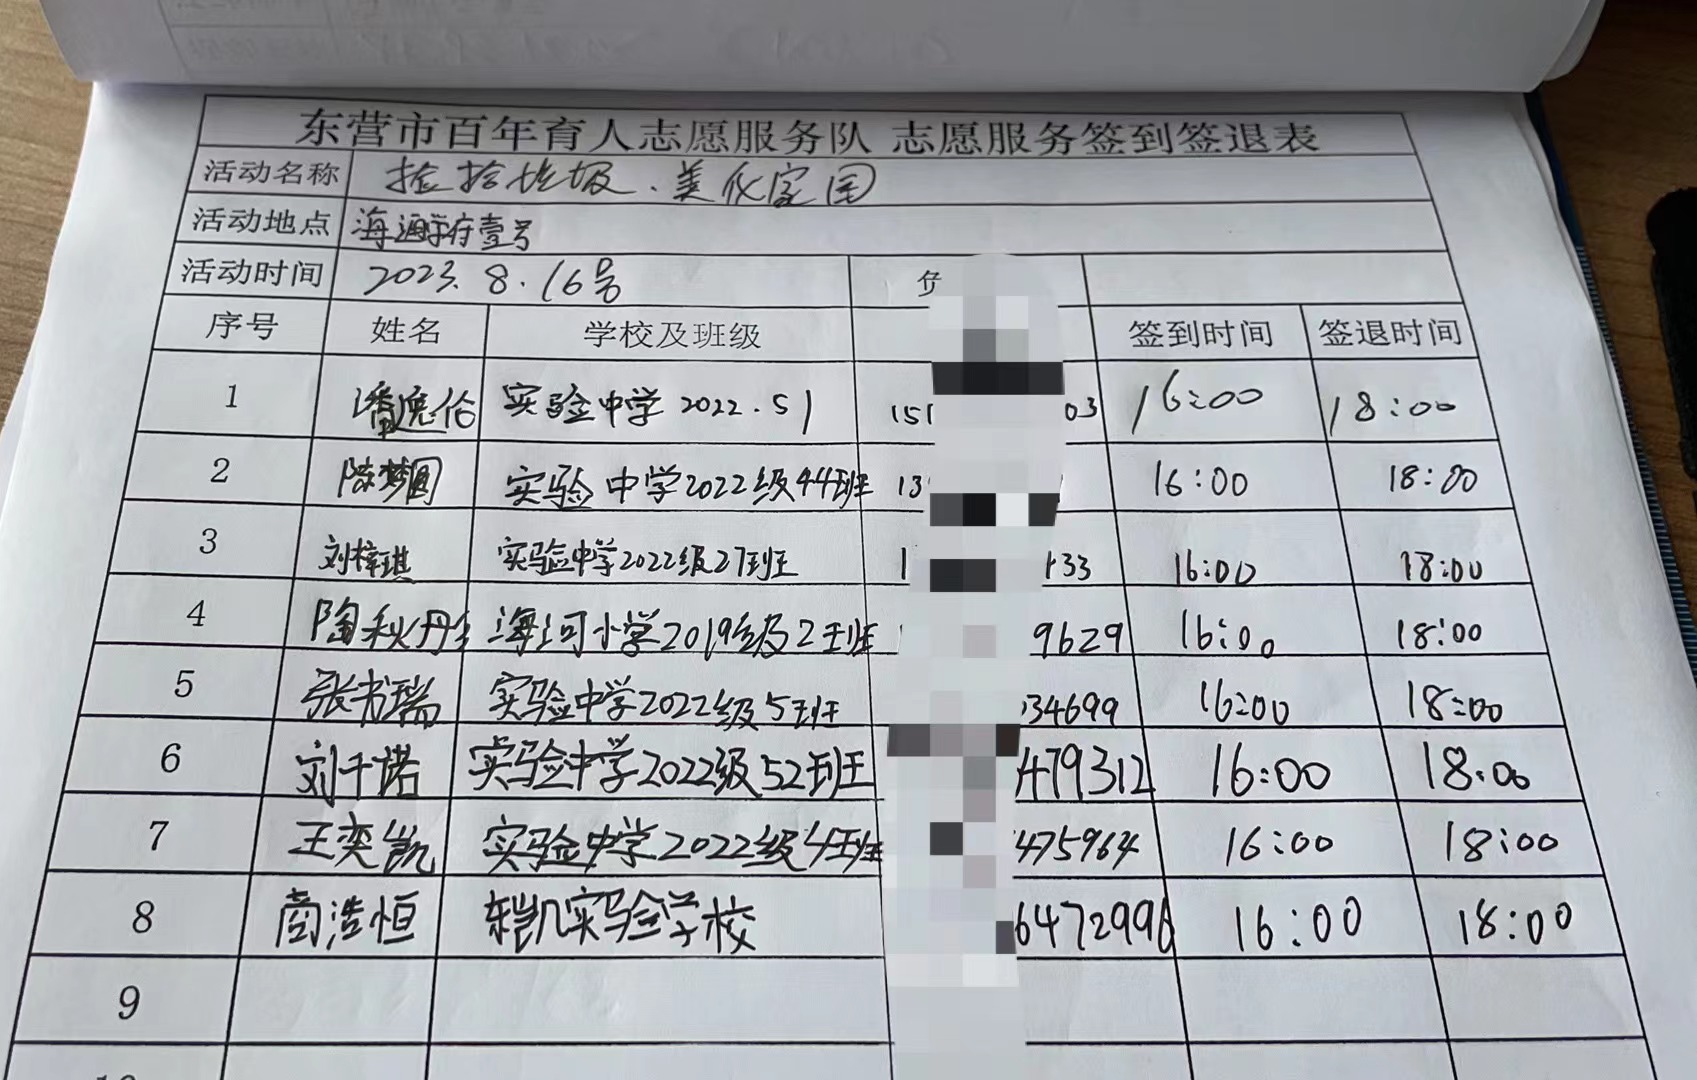 东营市百年育人志愿服务队 志愿服务签到签退表
活动名称 捡拾垃圾、美化家园
活动地点 海通学府壹号
活动时间 2023.8.16号
序号 姓名 学校及班级 签到时间 签退时间
1 潘 伦 实验中学2022.51 151 03 16:00 18:00
2 陈梦圆 实验中学2022级44班 13 16:00 18:00
3 刘梓琪 实验中学2022级27班 1 33 16:00 18:00
4 陶秋丹 海河小学2019级2班 9629 16:00 18:00
5 张书瑞 实验中学2022级5班 34699 16:00 18:00
6 刘千诺 实验中学2022级52班 479312 16:00 18:00
7 王奕凯 实验中学2022级4班 475964 16:00 18:00
8 商浩恒 东凯实验学校 6472996 16:00 18:00
9